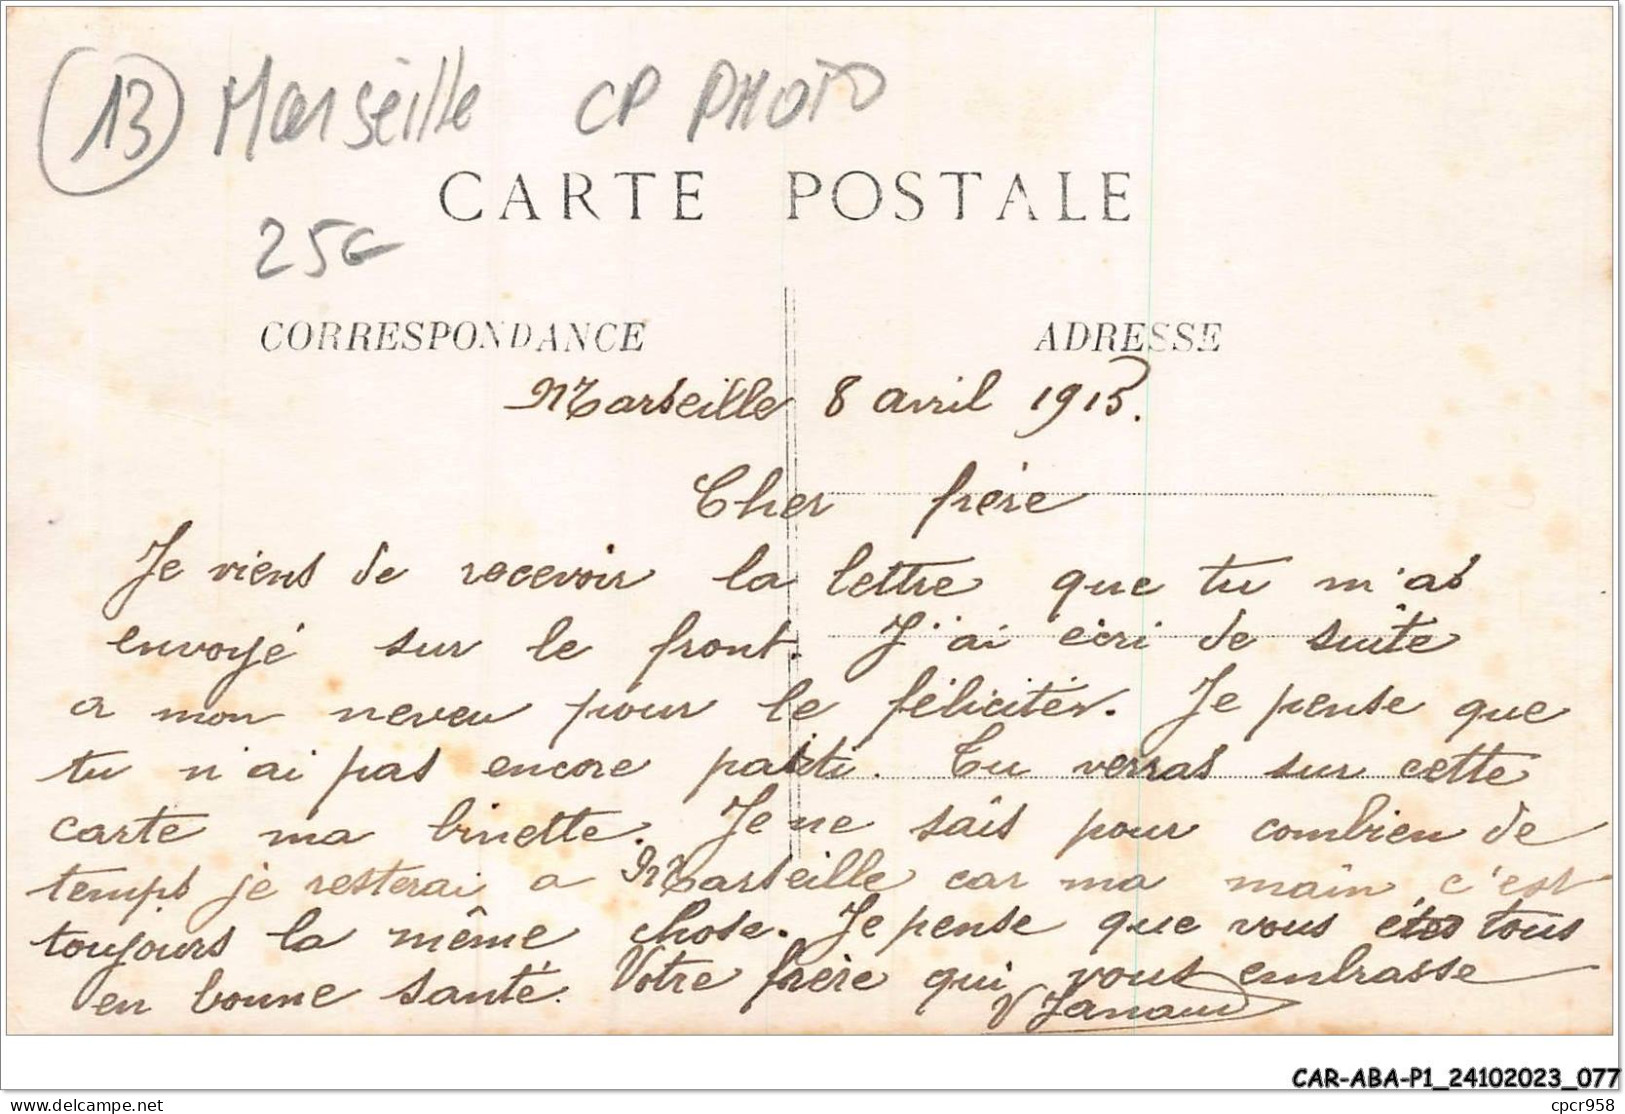 13 Marseille CP PHOTO
CARTE POSTALE
25€
CORRESPONDANCE ADRESSE
Marseille 8 avril 1915.
Cher frère
Je viens de recevoir la lettre que tu m'as
envoyé sur le front. J'ai écri de suite
a mon neveu pour le féliciter. Je pense que
tu n'ai pas encore parti. Tu verras sur cette
carte ma binette. Je ne sais pour combien de
temps je resterai a Marseille car ma main c'est
toujours la même chose. Je pense que vous étes tous
en bonne santé. Votre frère qui vous embrasse
CAR-ABA-P1_24102023_077
delcampe.net
cpcr958